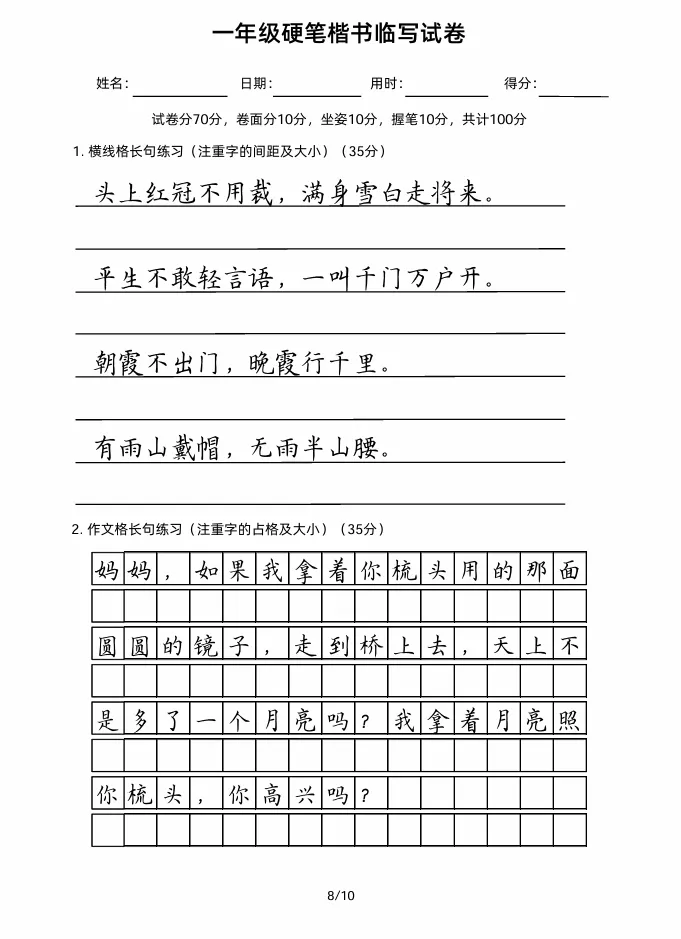 一年级硬笔楷书临写试卷
姓名： 日期： 用时： 得分：
试卷分70分，卷面分10分，坐姿10分，握笔10分，共计100分
1. 横线格长句练习（注重字的间距及大小）（35分）
头上红冠不用裁，满身雪白走将来。
平生不敢轻言语，一叫千门万户开。
朝霞不出门，晚霞行千里。
有雨山戴帽，无雨半山腰。
2. 作文格长句练习（注重字的占格及大小）（35分）
妈妈，如果我拿着你梳头用的那面
圆圆的镜子，走到桥上去，天上不
是多了一个月亮吗？我拿着月亮照
你梳头，你高兴吗？
8/10